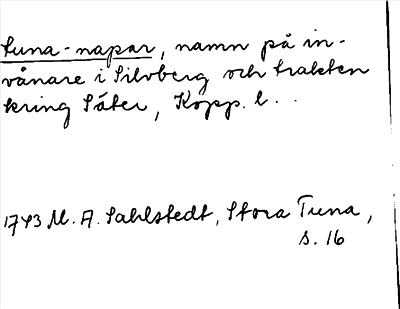 tuna-napar, namn på in-
vånare i Silvberg och trakten
kring Säter, Kopp. l. .
1743 M. A. Sahlstedt, Stora Tuna,
s. 16